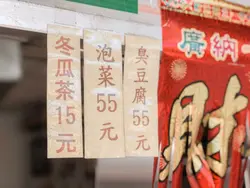 冬瓜茶15元
泡菜55元
臭豆腐55元
廣納
財